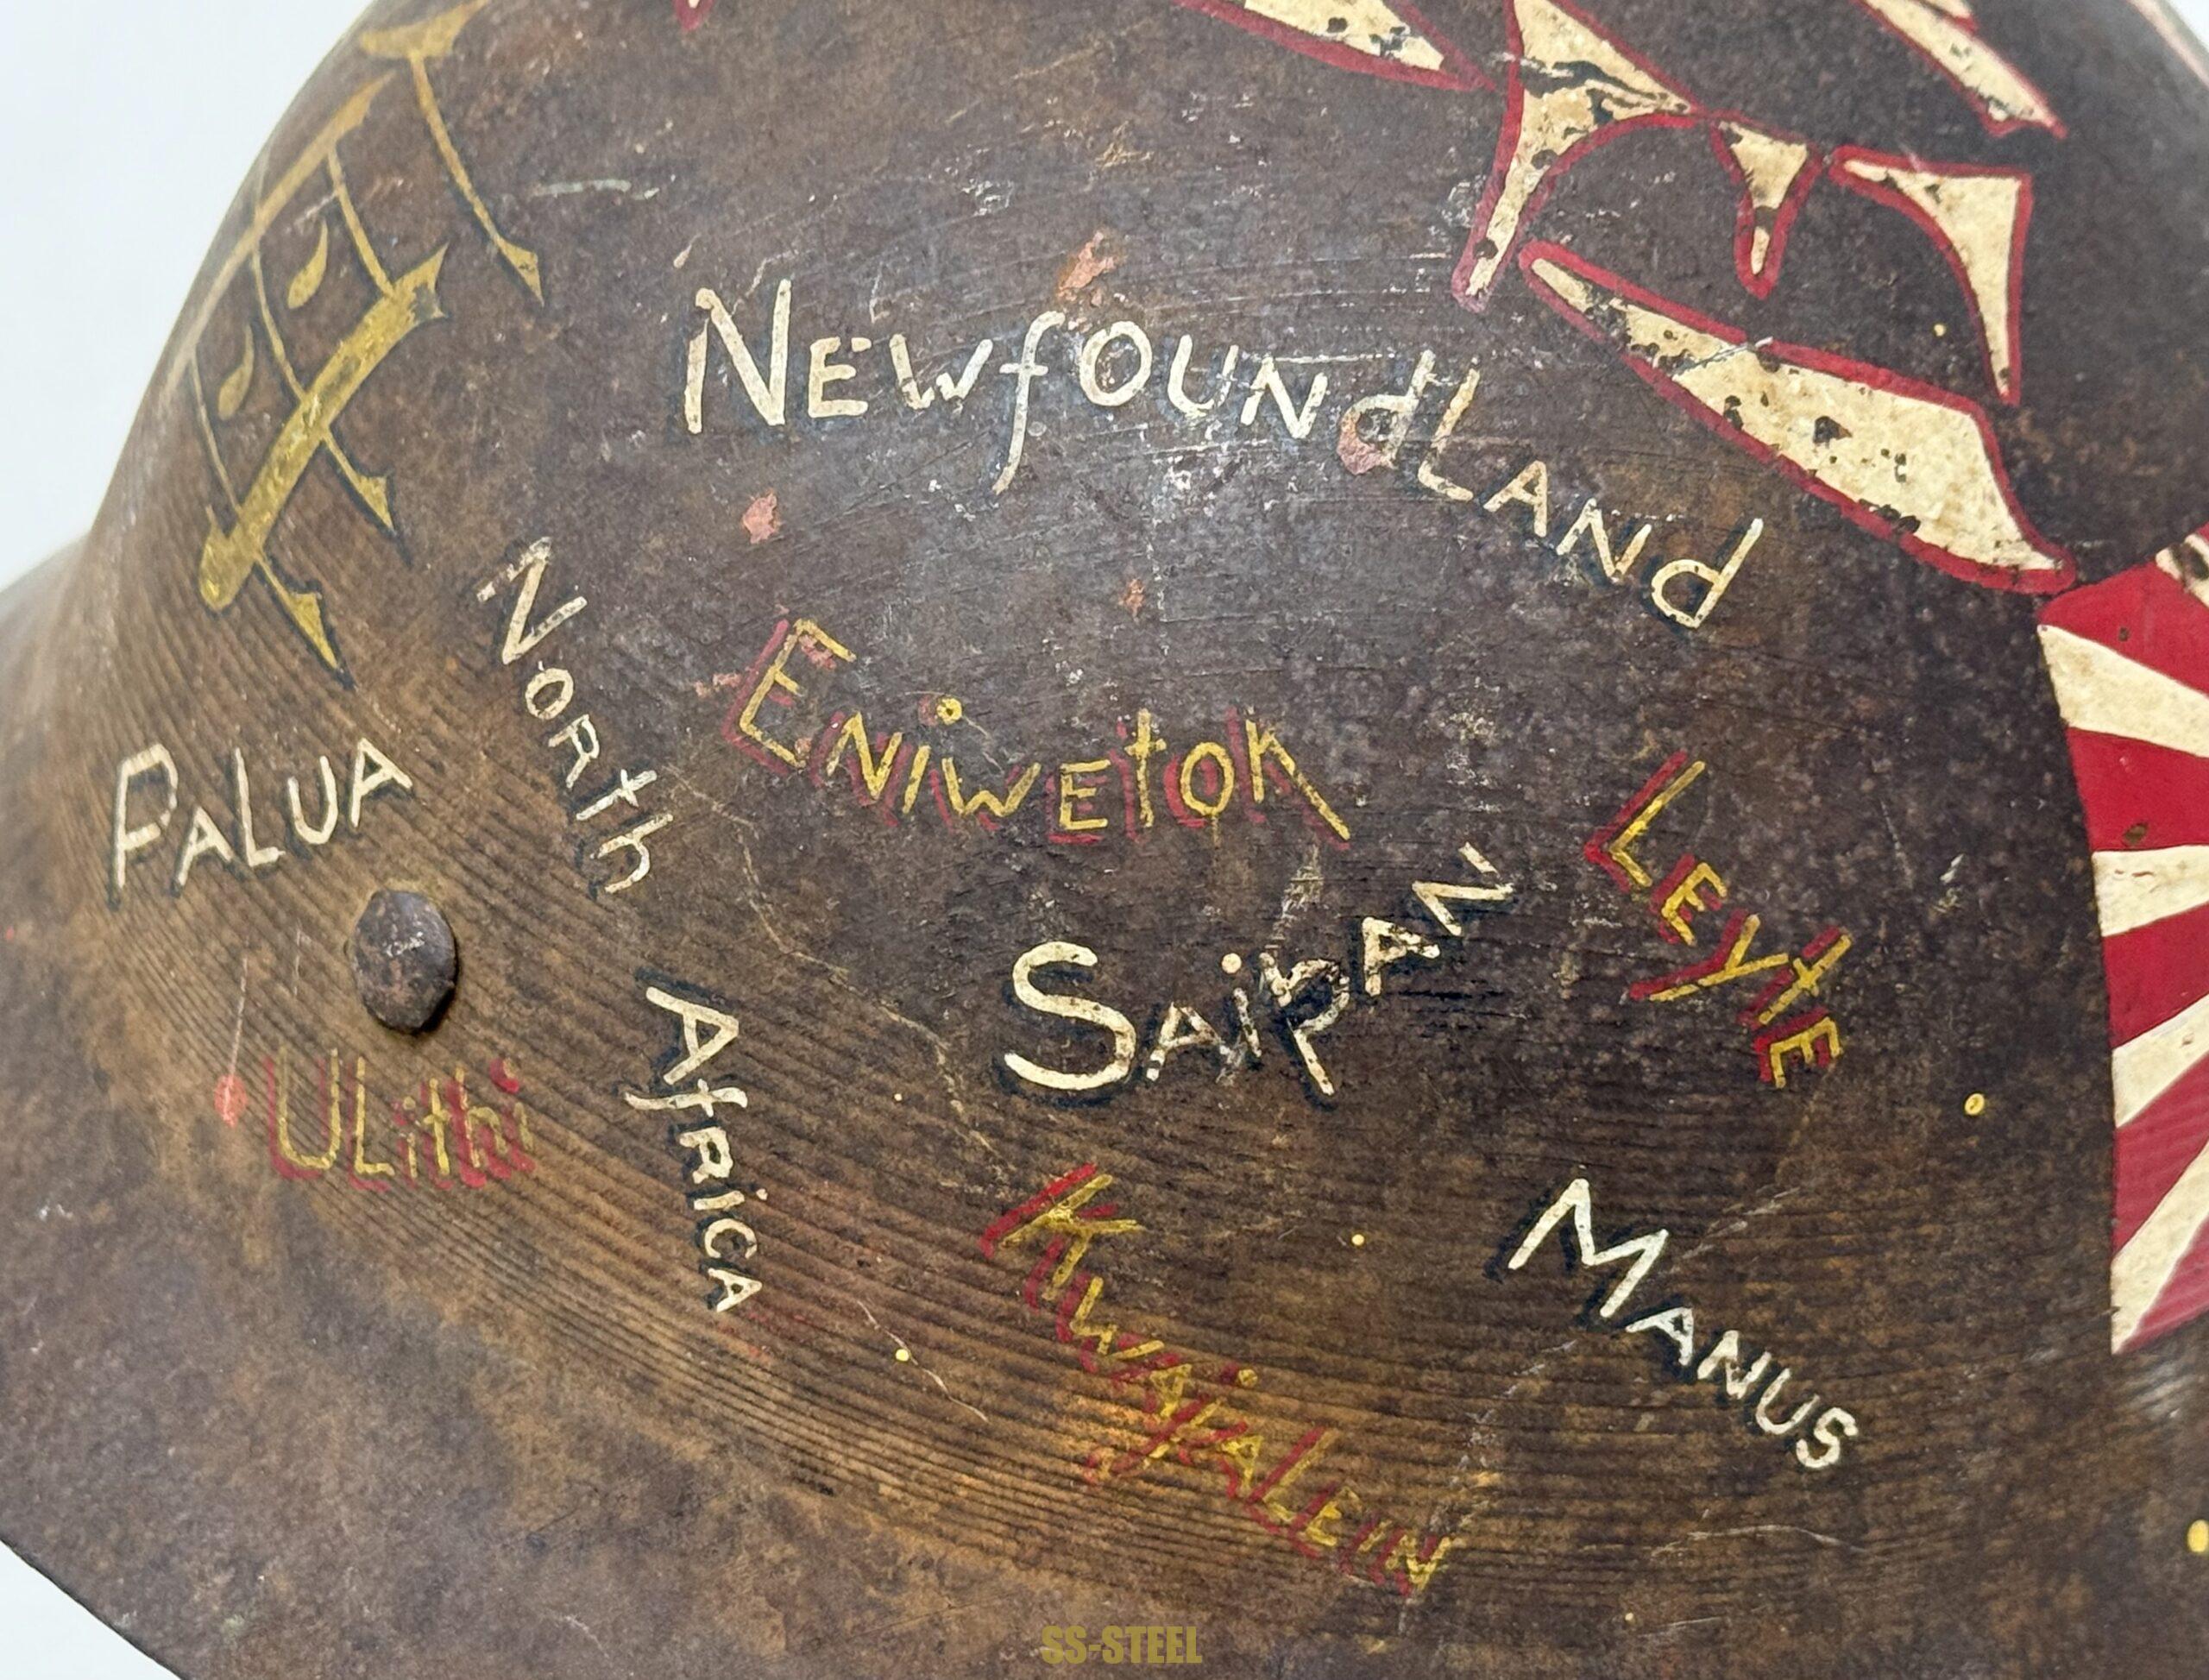 NEWfOUNdLANd
NORth AfRiCA
ENiWEtOK
PALUA
LEYtE
SAipAN
ULithi
KWAjALEIN
MANUS
SS-STEEL